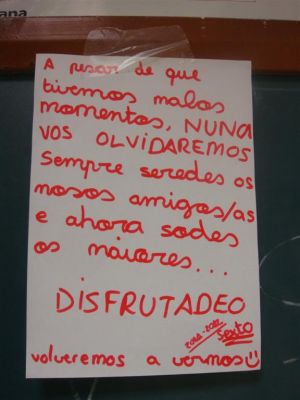 ana
A pesar de que
tivemos malos
momentos, NUNA
VOS OLVIDAREMOS
Sempre seredes os
nosos amigos/as
e ahora sodes
os maiores...
DISFRUTADEO
2011-2012
Sexto
volveremos a vernos